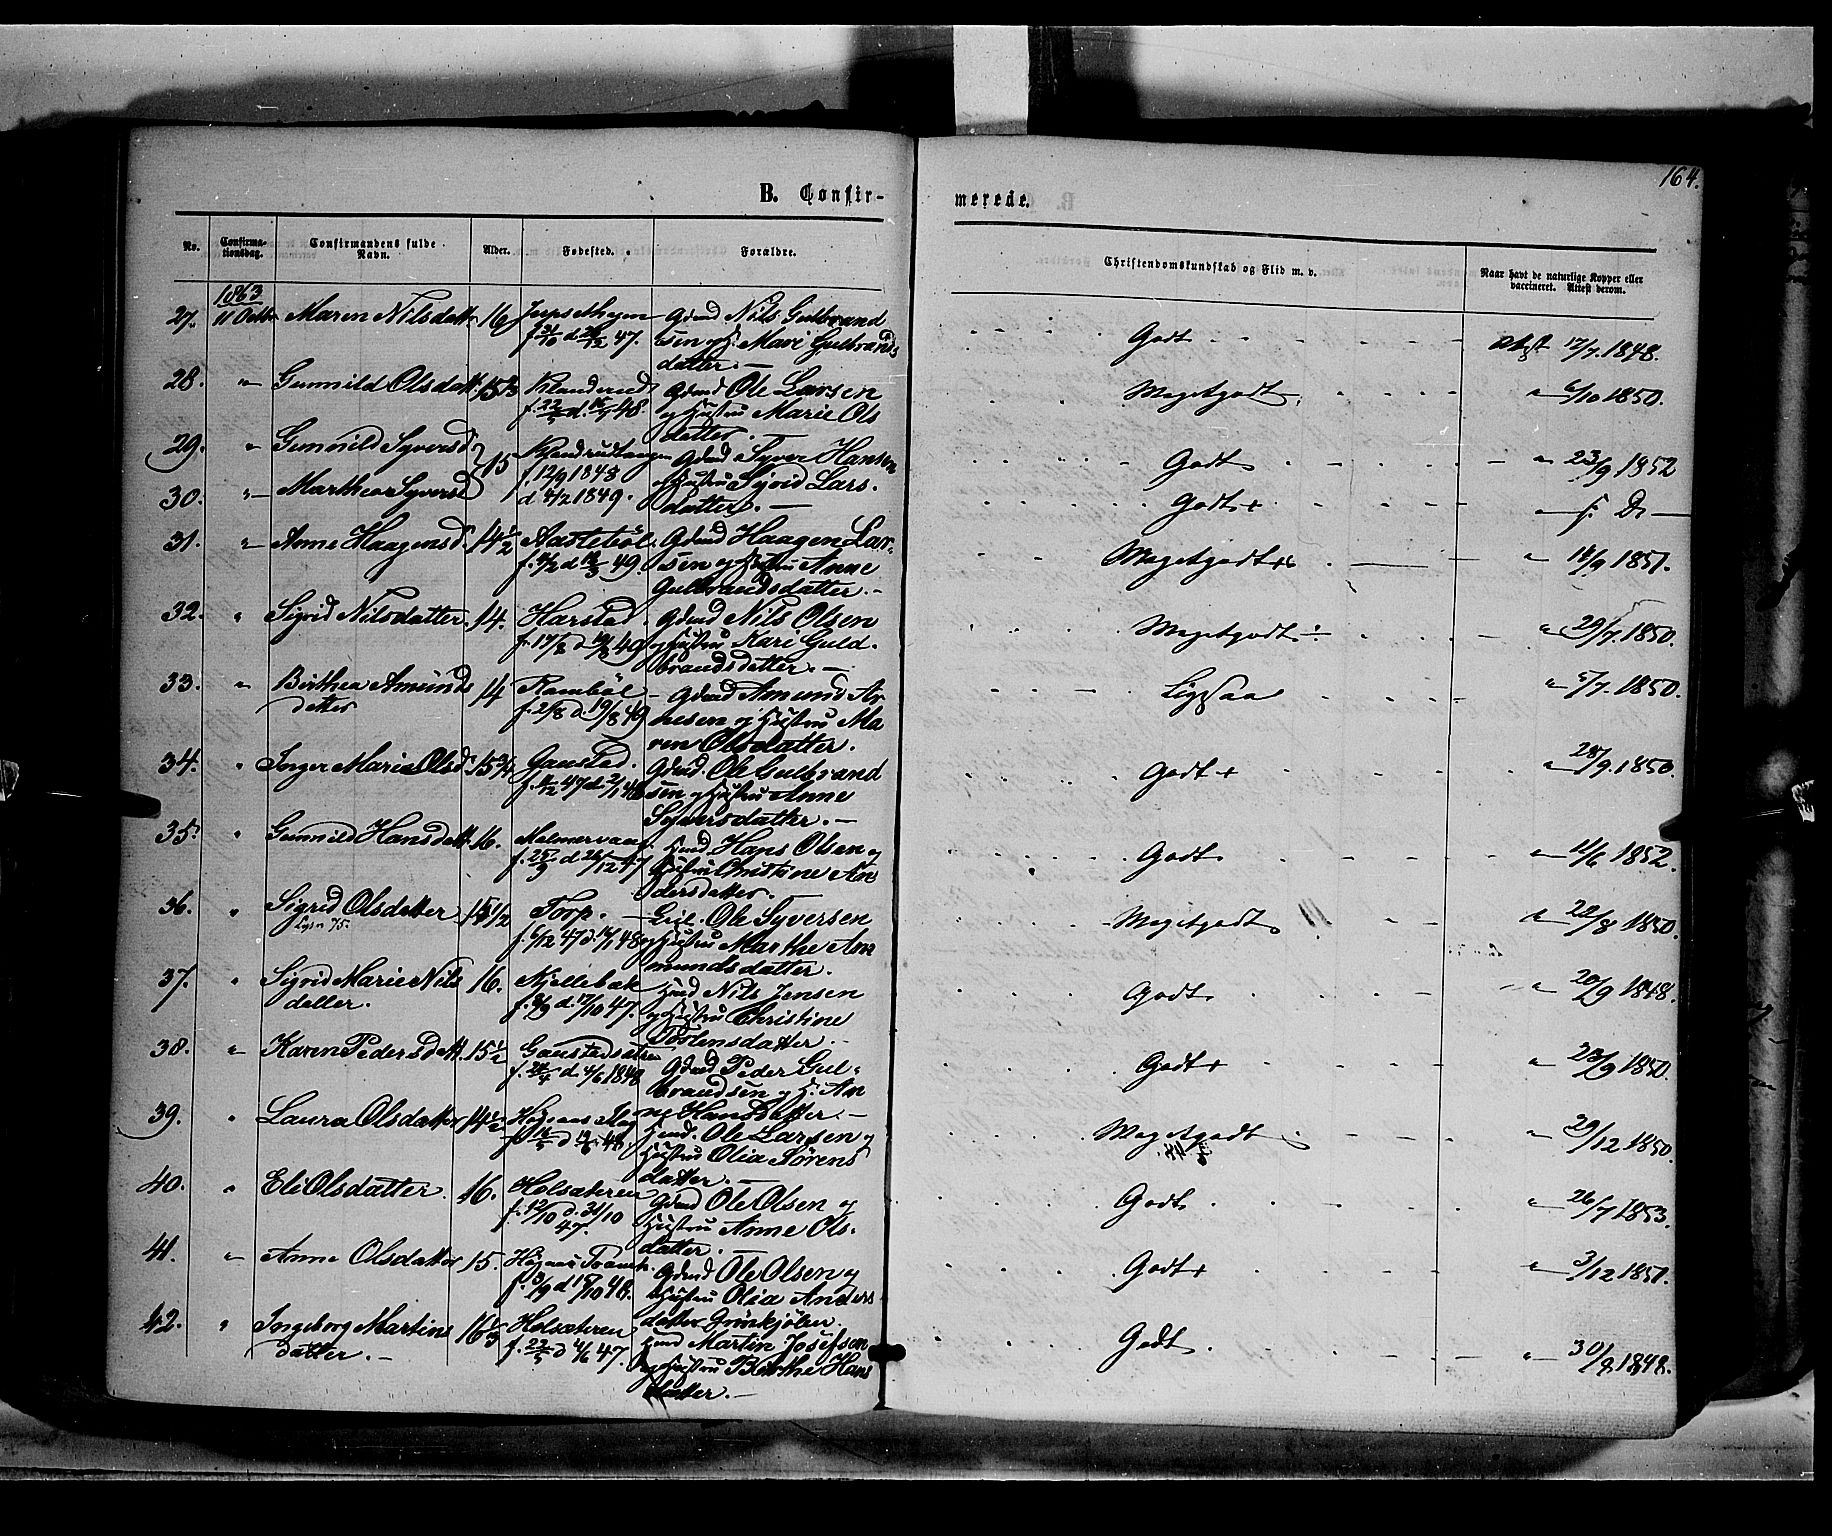 164.
B. Confir-
merede.
No.
Confirma-
tionsdag.
Confirmandens fulde
Navn.
Alder.
Fødested.
Forældre.
Christendomskundskab og Flid m. v.
Naar havt de naturlige Kopper eller
vaccineret. Attest derom.
1863
27. 11 Octbr Maren Nilsdattr 16
47.
Gdmd Nils Gulbrand
sen og H. Mari Gulbrands
datter. —
Godt
Attst 17/7. 1848.
28. " Gunnild Olsdattr
48.
Gdmd Ole Larsen
og Hustru Marie Ols
datter. —
Megetgodt
" 6/10 1850.
29. " Gunnild Syversd 15
f. 12/9 1848
Gdmd Syver Hansen
og Hustru Sigrid Lars-
datter. —
Godt
" 23/9 1852
30. " Marthea Syversd
d 4/2 1849.
Godt +
" s. D. —
31. " Anne Haagensd. 14 1/2
49.
Gdmd Haagen Lar-
sen og Hustru Anne
Gulbrandsdatter. —
Megetgodt +
" 14/9 1851.
32. " Sigrid Nilsdatter. 14. Harstad.
49
Gdmd Nils Olsen
og Hustru Kari Guld-
brandsdatter. —
Megetgodt ÷
" 29/7. 1850.
33. " Birthea Amunds
datter 14 Rambøl
f. 2/8 d. 19/8 49
Gdmd Amund Ar
nesen og Hustru Ma
ren Olsdatter.
Ligesaa
" 5/7. 1850.
34. " Inger Marie Olsd. 15 3/4 Gaustad.
47 d 2/1 48
Gdmd. Ole Gulbrand
sen og Hustru Anne
Syversdatter. —
Godt +
" 28/9. 1850.
35. " Gunnild Hansdattr. 16.
47
Hmd Hans Olsen og
Hustru Christine An
dersdatter.
Godt
" 11/6 1852.
36. " Sigrid Olsdatter 15 1/2 Torp. —
f. 6/12 47 d. 16/1 48
Ole Syversen
og Hustru Marthe Am
mundsdatter.
Megetgodt
" 28/8 1850.
37. " Sigrid Marie Nils
datter. 16. Kjellebæk
d. 17/10 47.
Hmd Nils Jensen
og Hustru Christine
Torstensdatter. —
Godt.
" 20/9 1848.
38. " Karen Pedersdattr. 15 1/2 Gaustadsætren
d 4/6 1848
Gdmd Peder Gul-
brandsen og H. An
ne Hansdatter. —
Godt +
" 23/9 1850.
39. " Laura Olsdatter 14 1/2
48.
Hmd. Ole Larsen og
Hustru Olia Sørens
datter. —
Megetgodt
" 29/12 1850.
40. " Eli Olsdatter. 16. Holsæteren
f. 12/10 d. 31/10
47.
Gdmd Ole Olsen og
Hustru Anne Ols-
datter. —
Godt.
" 26/7 1853.
41. " Anne Olsdatter 15.
f. 3/9 d 15/10 48.
Gdmd Ole Olsen og
Hustru Olia Anders
datter
Godt +
" 3/12 1851.
42. " Ingeborg Martins
datter. — 16 1/3 Holsæteren
47.
Hmd Martin Josefsen
og Hustru Birthe Hans
datter. —
Godt
" 30/9 1848.